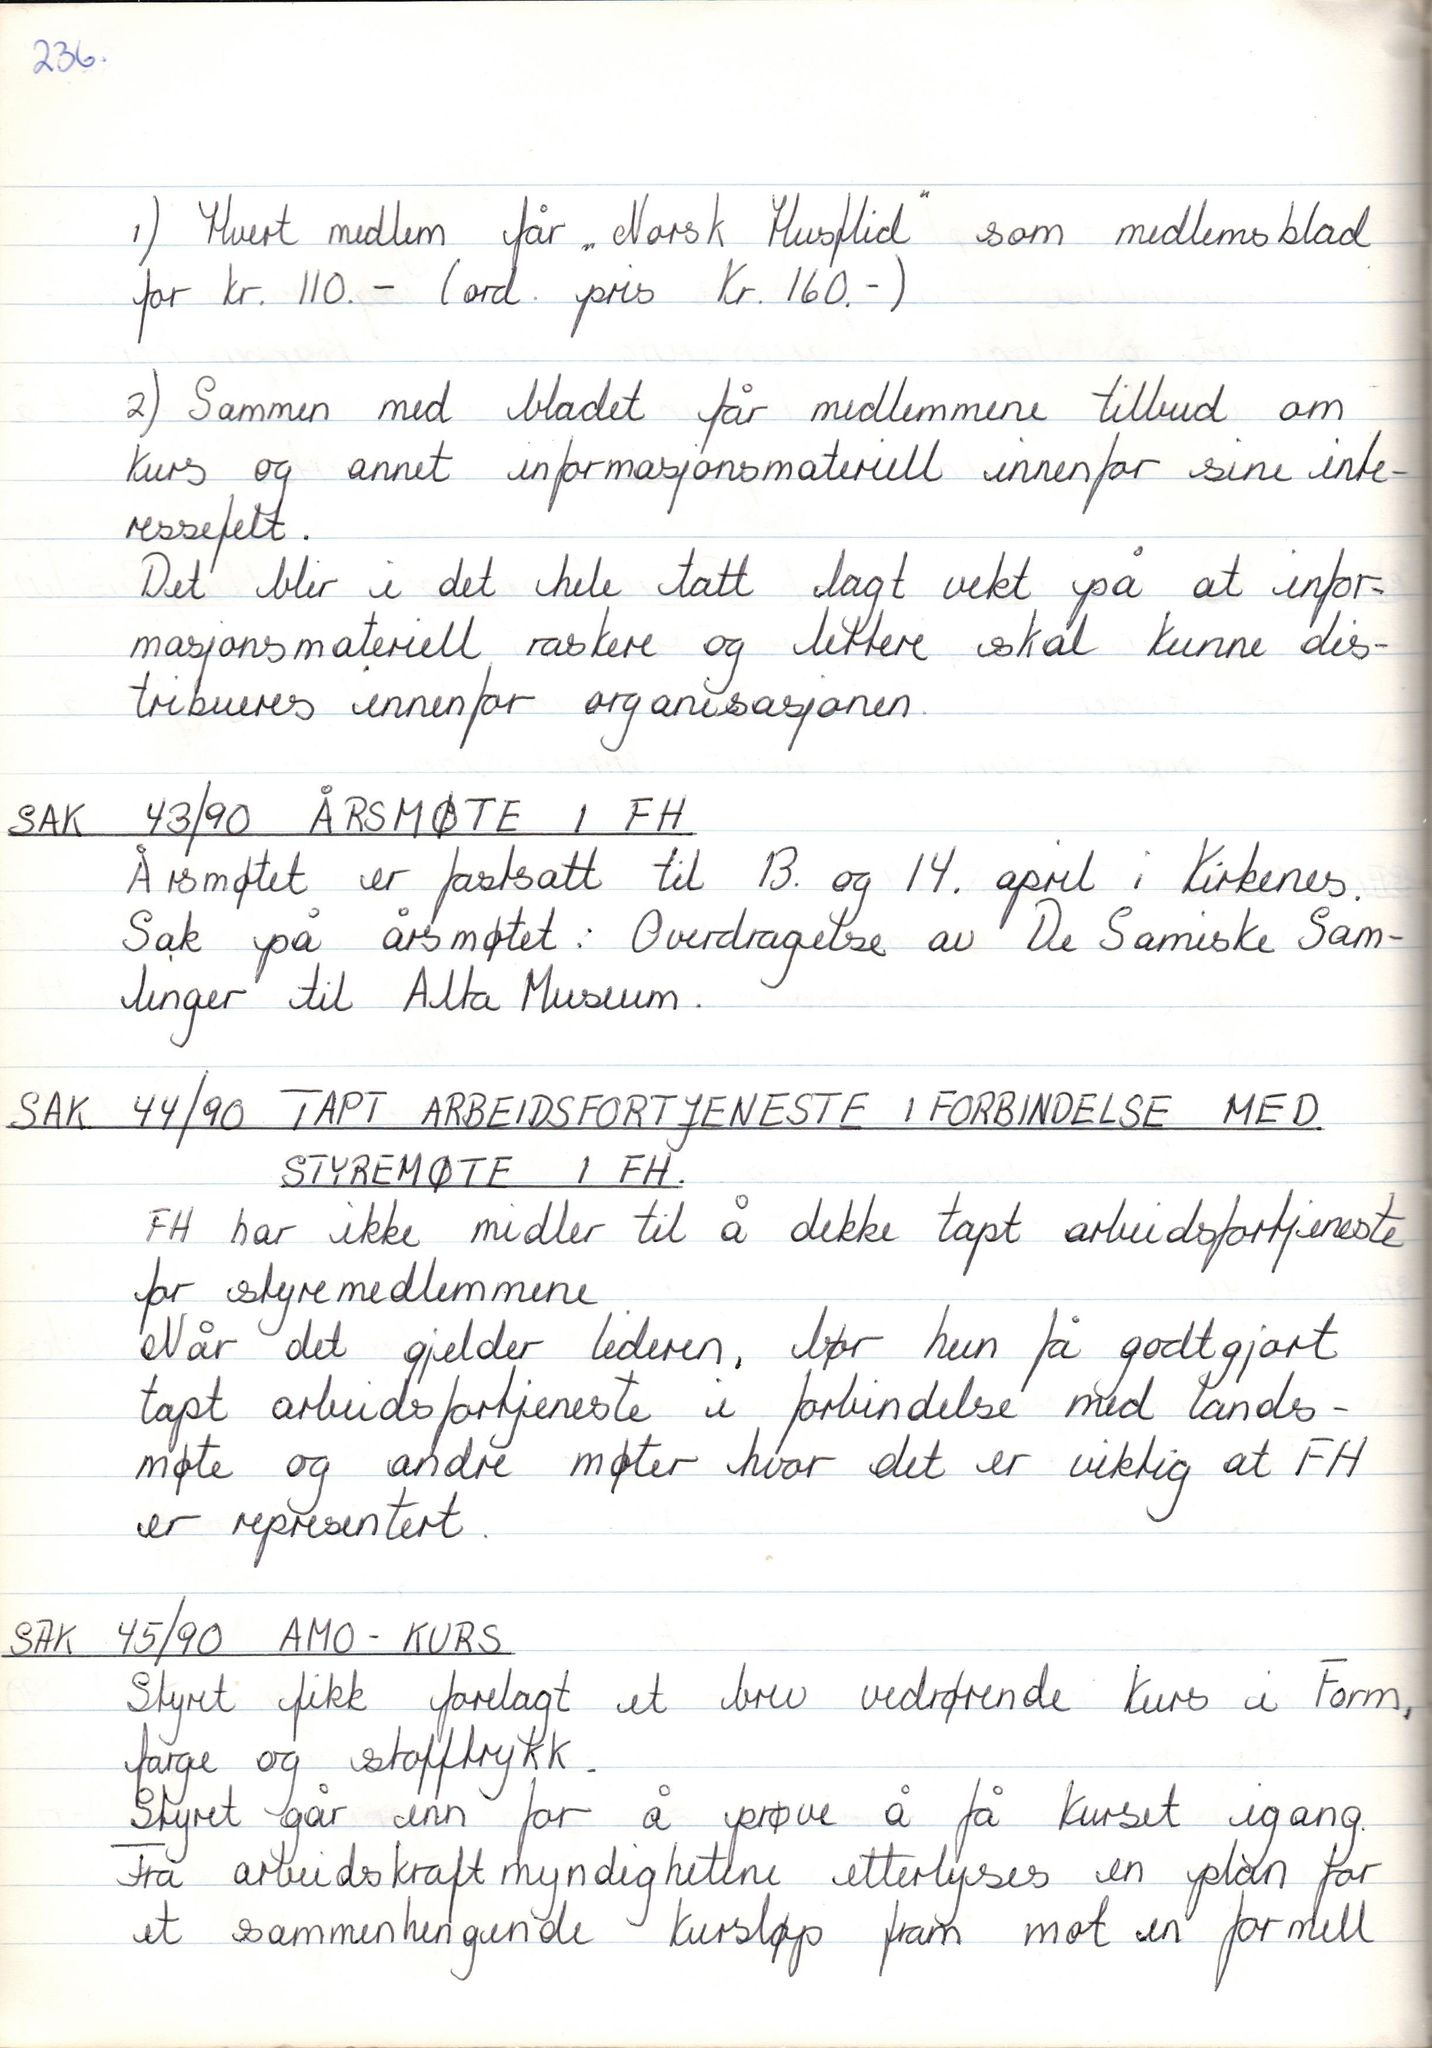 236.
1) Hvert medlem får „Norsk Husflid" som medlemsblad
for kr. 110.- (ord. pris kr. 160.-)
2) Sammen med bladet får medlemmene tilbud om
kurs og annet informasjonsmateriell innenfor sine inte-
ressefelt.
Det blir i det hele tatt lagt vekt på at infor-
masjonsmateriell raskere og lettere skal kunne dis-
tribueres innenfor organisasjonen.
SAK 43/90 ÅRSMØTE I FH
Årsmøtet er fastsatt til 13. og 14. april i Kirkenes.
Sak på årsmøtet: Overdragelse av De Samiske Sam-
linger til Alta Museum.
SAK 44/90 TAPT ARBEIDSFORTJENESTE I FORBINDELSE MED
STYREMØTE I FH.
FH har ikke midler til å dekke tapt arbeidsfortjeneste
for styremedlemmene
Når det gjelder lederen, bør hun få godtgjort
tapt arbeidsfortjeneste i forbindelse med lands-
møte og andre møter hvor det er viktig at FH
er representert.
SAK 45/90 AMO-KURS
Styret fikk forelagt et brev vedrørende kurs i Form,
farge og stofftrykk.
Styret går inn for å prøve å få kurset igang.
Fra arbeidskraftmyndighetene etterlyses en plan for
et sammenhengende kursløp fram mot en formell